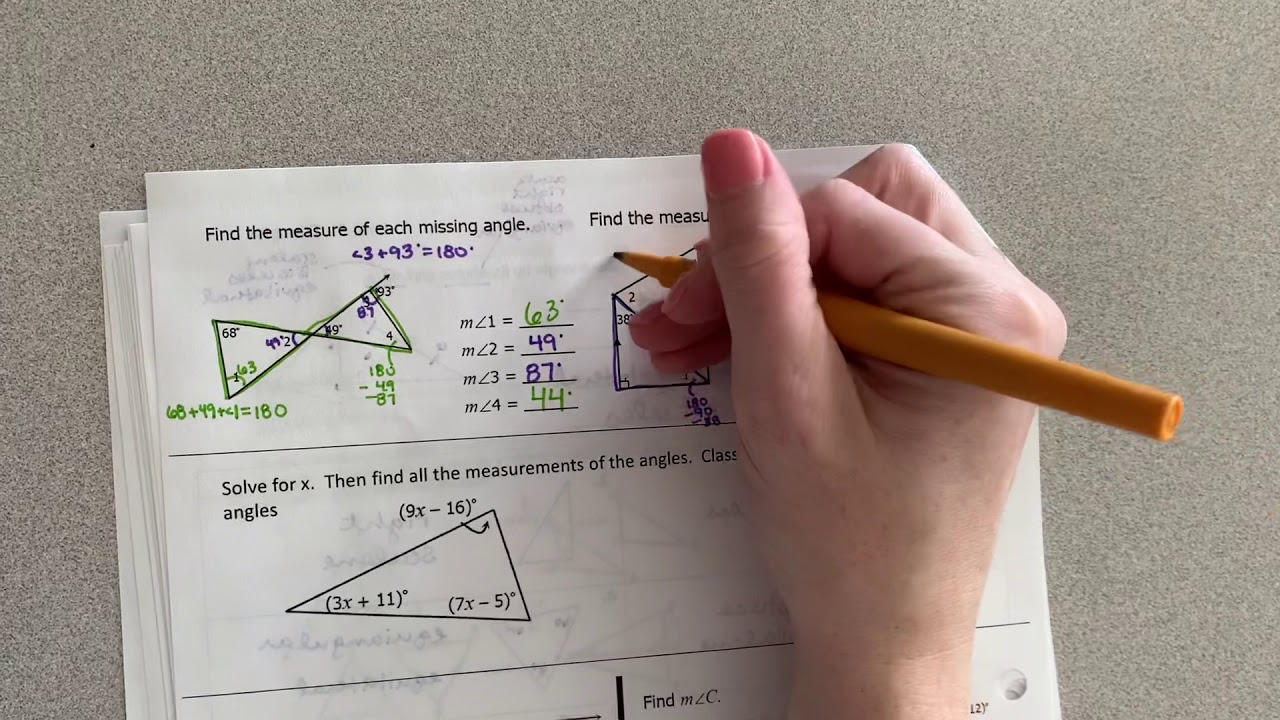 Find the measure of each missing angle.
<3+93°=180°
93°
3
87
68°
49°2
49°
4
63
1
180
- 49
- 87
68+49+<1=180
m∠1 = 63°
m∠2 = 49°
m∠3 = 87°
m∠4 = 44°
Find the measu
2
38°
180
-90
-38
Solve for x. Then find all the measurements of the angles. Class
angles
(9x – 16)°
(3x + 11)°
(7x – 5)°
Find m∠C.
12)°